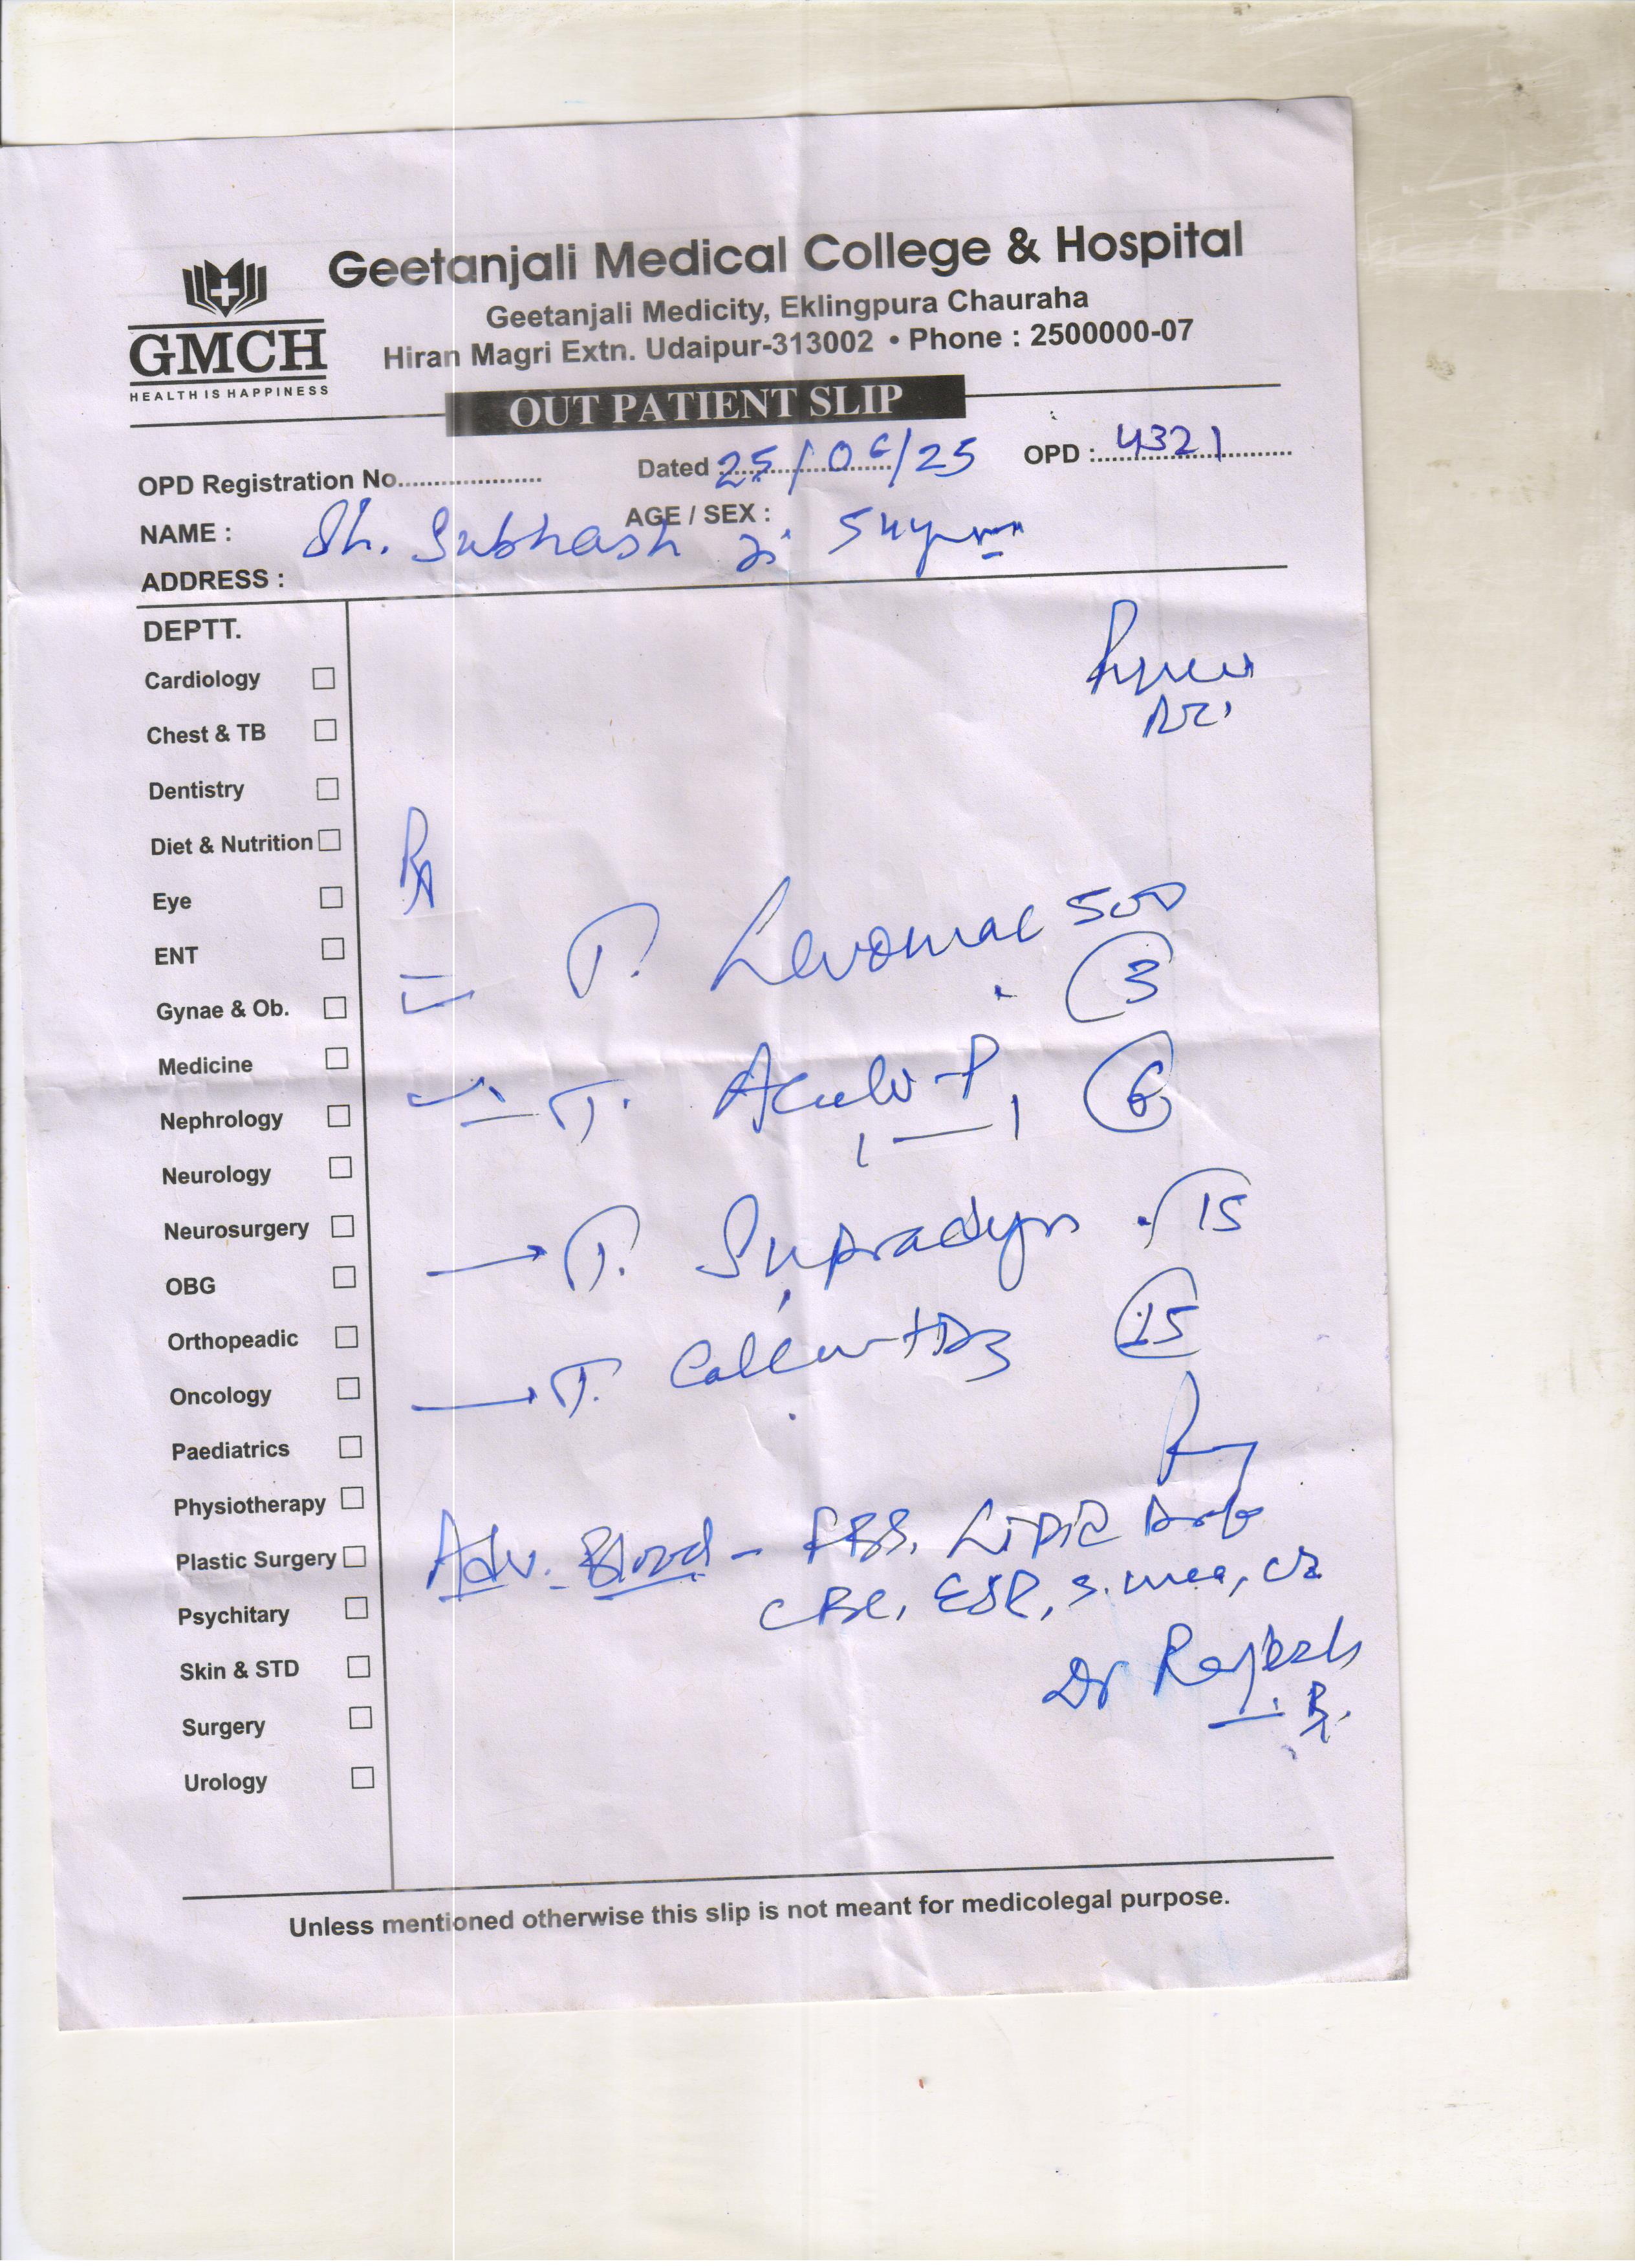 Geetanjali Medical College & Hospital
Geetanjali Medicity, Eklingpura Chauraha
Hiran Magri Extn. Udaipur-313002 • Phone : 2500000-07
GMCH
HEALTH IS HAPPINESS
OUT PATIENT SLIP
OPD Registration No. Dated 25/06/25 OPD : 4321
NAME : Sh. Subhash ji AGE / SEX :
ADDRESS :
DEPTT.
Cardiology
Chest & TB
Dentistry
Diet & Nutrition
Eye
ENT
Gynae & Ob.
Medicine
Nephrology
Neurology
Neurosurgery
OBG
Orthopeadic
Oncology
Paediatrics
Physiotherapy
Plastic Surgery
Psychitary
Skin & STD
Surgery
Urology
Rx
T. Levomac 500
3
T. -P 6
T. Supradyn 15
T. D3 15
Adv. Blood - FBS, Lipid
CBC, ESR, S. urea, cr
Dr Rajesh
Unless mentioned otherwise this slip is not meant for medicolegal purpose.